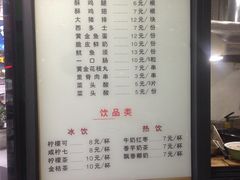 酥鸡腿 6元/个
酥鸡翅 7元/个
大猪排 12元/块
西多士 12元/份
黄金鱼蛋 10元/份
脆皮鲜奶 10元/份
鱿鱼须 13元/份
一口肠 10元/份
黄金花枝丸 7元/串
里脊肉串 3元/串
菜头酸 3元/串
菜头酸
饮品类
冰饮
热饮
柠檬可 8元/杯
牛奶红枣 7元/杯
咸柠七 8元/杯
香芋奶茶 7元/杯
柠檬茶 10元/杯
飘香椰奶 7元/杯
金桔茶 10元/杯